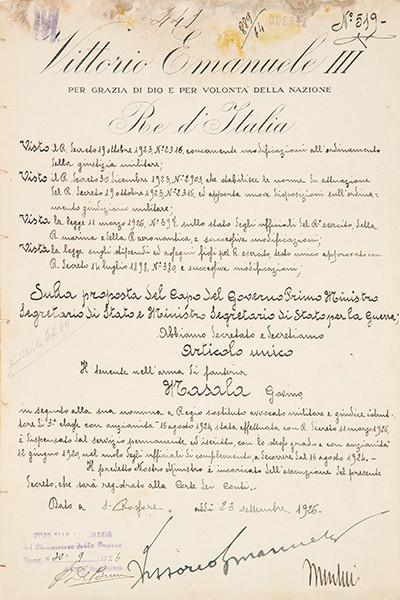 N. 519-
Vittorio Emanuele III
PER GRAZIA DI DIO E PER VOLONTÀ DELLA NAZIONE
Re d'Italia
Visto il R. Decreto 19 ottobre 1923, N. 2316, concernente modificazioni all'ordinamento
della giustizia militare;
Visto il R. Decreto 30 Dicembre 1923, N. 2903, che stabilisce le norme di attuazione
del R. Decreto 19 ottobre 1923, N. 2316, ed apporta nuove disposizioni sull'ordina-
mento giudiziario militare;
Vista la legge 11 marzo 1926, N. 397, sullo stato degli ufficiali del R. esercito, della
R. marina e della R. aeronautica, e successive modificazioni;
Vista la legge sugli stipendi ed assegni fissi pel R. esercito, testo unico approvato con
R. Decreto 14 luglio 1898, N. 380, e successive modificazioni;
Sulla proposta del Capo del Governo Primo Ministro
Segretario di Stato e Ministro Segretario di Stato per la Guerra;
Abbiamo Decretato e Decretiamo
Articolo unico
Il tenente nell'arma di fanteria
Masala
in seguito alla sua nomina a Regio sostituto avvocato militare e giudice istrut-
tore di 3ª classe con anzianità 16 agosto 1924, stata effettuata con R. Decreto 11 marzo 1926,
è dispensato dal servizio permanente ed iscritto, con lo stesso grado e con anzianità
12 giugno 1920, nel ruolo degli ufficiali di complemento, a decorrere dal 16 agosto 1924.
Il predetto Nostro Ministro è incaricato dell'esecuzione del presente
Decreto, che sarà registrato alla Corte dei Conti.
Dato a S. Rossore addì 23 settembre 1926-
Vittorio Emanuele